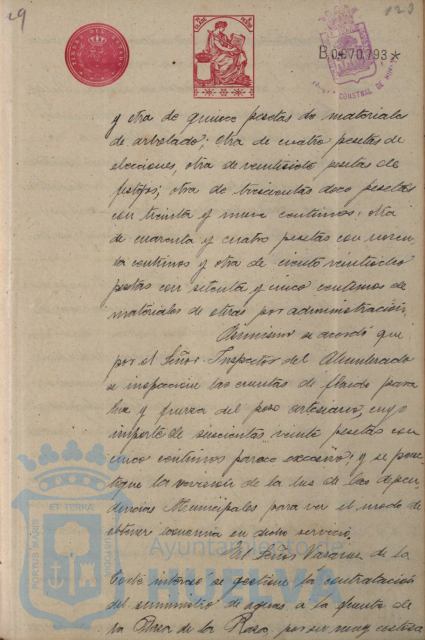 29
123
B.0.670.793*
y otra de quince pesetas de materiales
de arbolado; otra de cuatro pesetas de
elecciones, otra de veintiocho pesetas de
festejos; otra de trescientas doce pesetas
con treinta y nueve centimos; otra
de cuarenta y cuatro pesetas con noven
ta centimos y otra de ciento veintiocho
pesetas con setenta y cinco centimos de
materiales de obras por administración.
Asimismo se acordó que
por el Señor Inspector del Alumbrado
se inspeccionen las cuentas de fluido para
luz y fuerza del pozo artesiano, cuyo
importe de seiscientas veinte pesetas con
cinco centimos parece excesivo; y se prac
tique la revisión de la luz de las depen
dencias Municipales para ver el modo de
obtener economia en dicho servicio.
El Señor Vazquez de la
Corte interesó se gestione la contratación
del suministro de aguas a la fuente de
la Plaza de la Rosa, por ser muy costosa
PORTUS MARIS
ET TERRAE
CUSTODIA
Ayuntamiento de
HUELVA